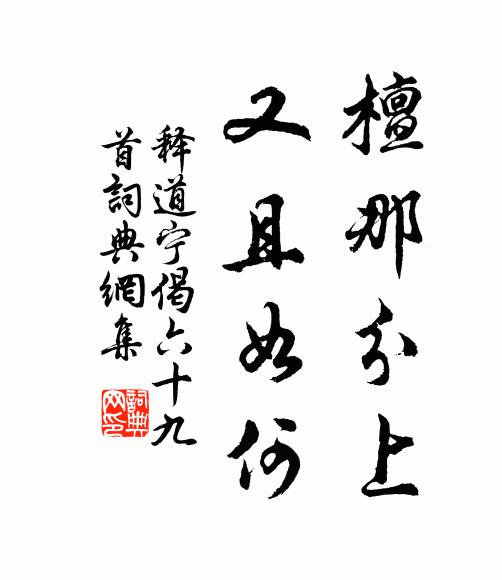 檀那分上
又且如何
释道宁偈六十九
首詞典網集
詞典
网印